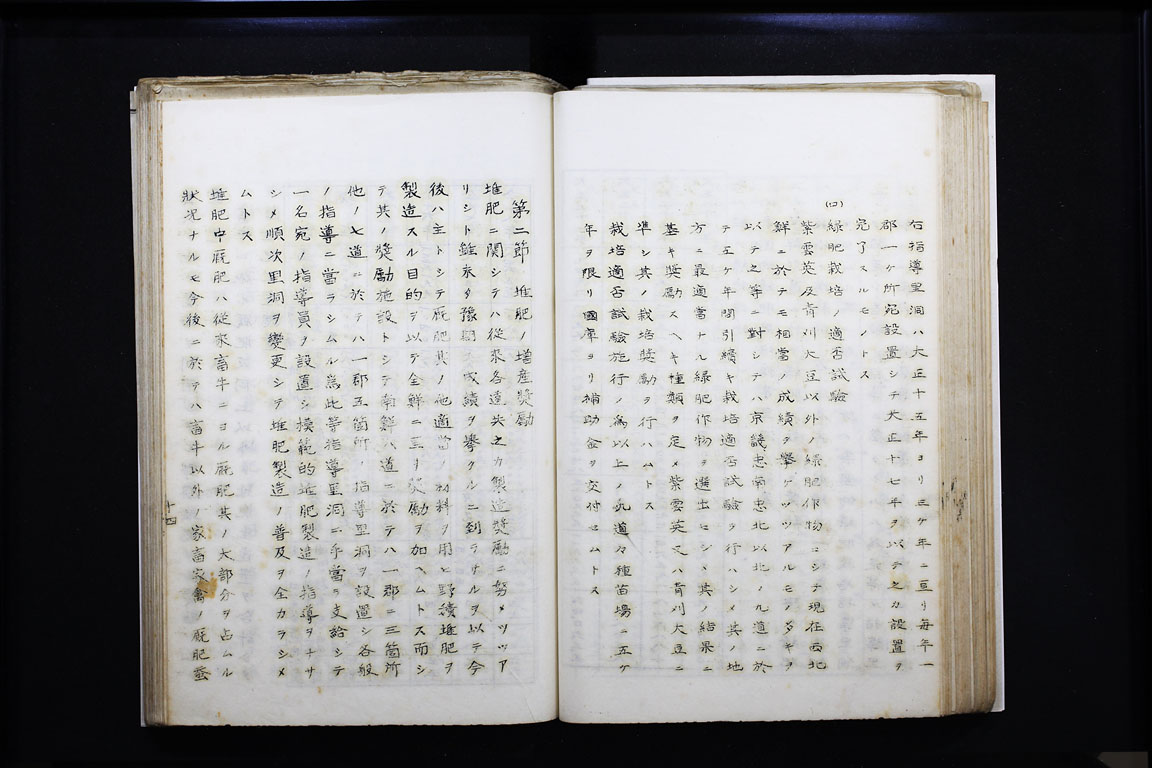 右指導里洞ハ大正十五年ヨリ三ケ年ニ亘リ毎年一
郡一ケ所宛設置シテ大正十七年ヲ以テ之カ設置ヲ
完了スルモノトス
(ロ) 緑肥栽培ノ適否試験
紫雲英及青刈大豆以外ノ緑肥作物ニシテ現在西北
鮮ニ於テモ相當ノ成績ヲ擧ケツツアルモノ多キヲ
以テ之等ニ對シテハ京畿忠南忠北以北ノ九道ニ於
テ五ケ年間引續キ栽培適否試験ヲ行ハシメ其ノ地
方ニ最適當ナル緑肥作物ヲ選出セシメ其ノ結果ニ
基キ奬勵スヘキ種類ヲ定メ紫雲英又ハ青刈大豆ニ
準シ其ノ栽培奬勵ヲ行ハムトス
栽培適否試験施行ノ為以上ノ九道々種苗場ニ五ケ
年ヲ限リ國庫ヨリ補助金ヲ交付セムトス
第二節 堆肥ノ増産奬勵
堆肥ニ関シテハ從來各道共之カ製造奬勵ニ努メツツア
リシト雖未タ豫期ノ成績ヲ擧クルニ到ラサルヲ以テ今
後ハ主トシテ厩肥其ノ他適當ノ材料ヲ用ヒ野積堆肥ヲ
製造スル目的ヲ以テ全鮮ニ亘リ奬勵ヲ加ヘムトス而シ
テ其ノ奬勵施設トシテ南鮮六道ニ於テハ一郡ニ三箇所
他ノ七道ニ於テハ一郡五箇所ノ指導里洞ヲ設置シ各般
ノ指導ニ當ラシムル為此等指導里洞ニ手當ヲ支給シテ
一名宛ノ指導員ヲ設置シ模範的堆肥製造ノ指導ヲナサ
シメ順次里洞ヲ變更シテ堆肥製造ノ普及ヲ全カラシメ
ムトス
堆肥中厩肥ハ從來畜牛ニヨル厩肥其ノ大部分ヲ占ムル
狀況ナルモ今後ニ於テハ畜牛以外ノ家畜家禽ノ厩肥蚕
十四